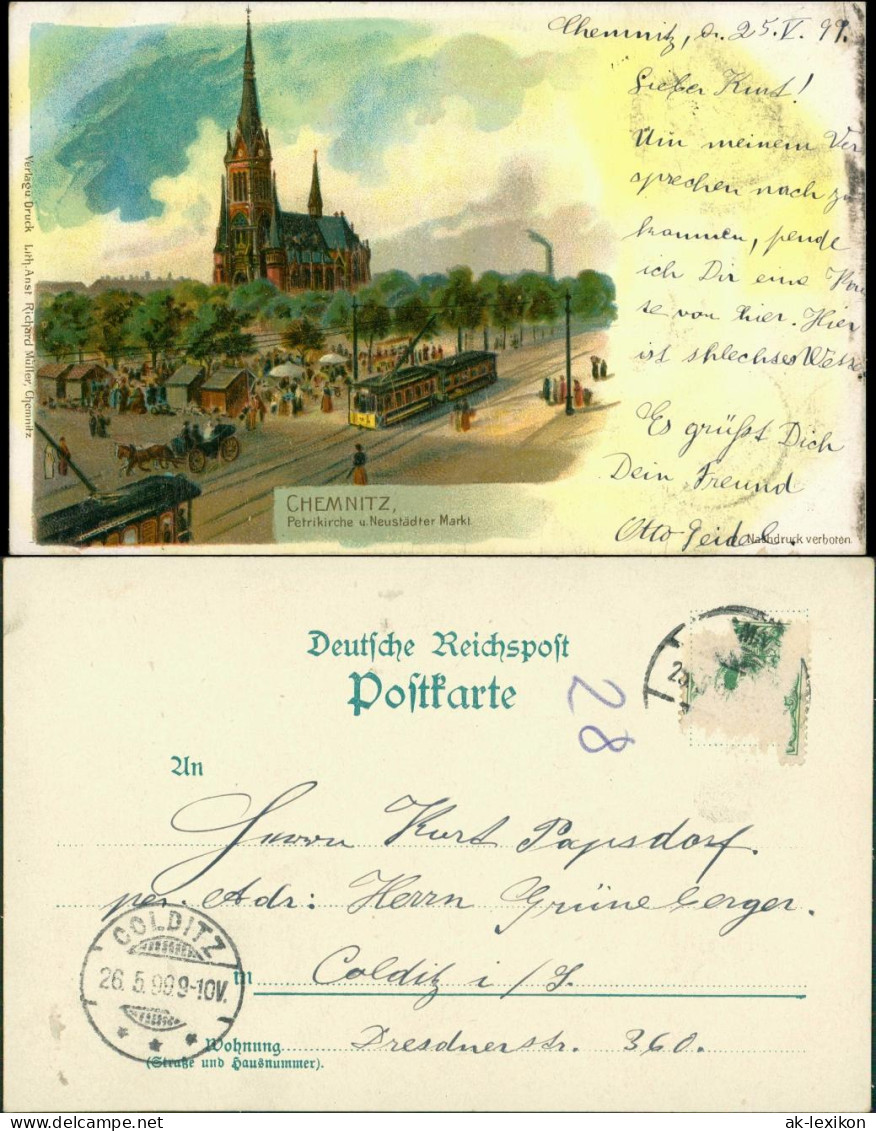 Chemnitz, d. 25.V.99.
Lieber Kurt!
Um meinem Ver
sprechen nach zu
kommen, sende
ich Dir eine Kar
te von hier. Hier
ist schlechtes
Es grüßt Dich
Dein Freund
Otto Seidel.
Verlag u Druck Lith. Anst Richard Müller, Chemnitz.
CHEMNITZ,
Petrikirche u. Neustädter Markt.
Nachdruck verboten.
Deutsche Reichspost
Postkarte
28
An
Herrn Kurt Papsdorf.
per. Adr: Herrn Grüneberger.
in Colditz i/S.
Wohnung Dresdnerstr. 360.
(Straße und Hausnummer).
COLDITZ
26.5.99.9-10V.
ak-lexikon.com